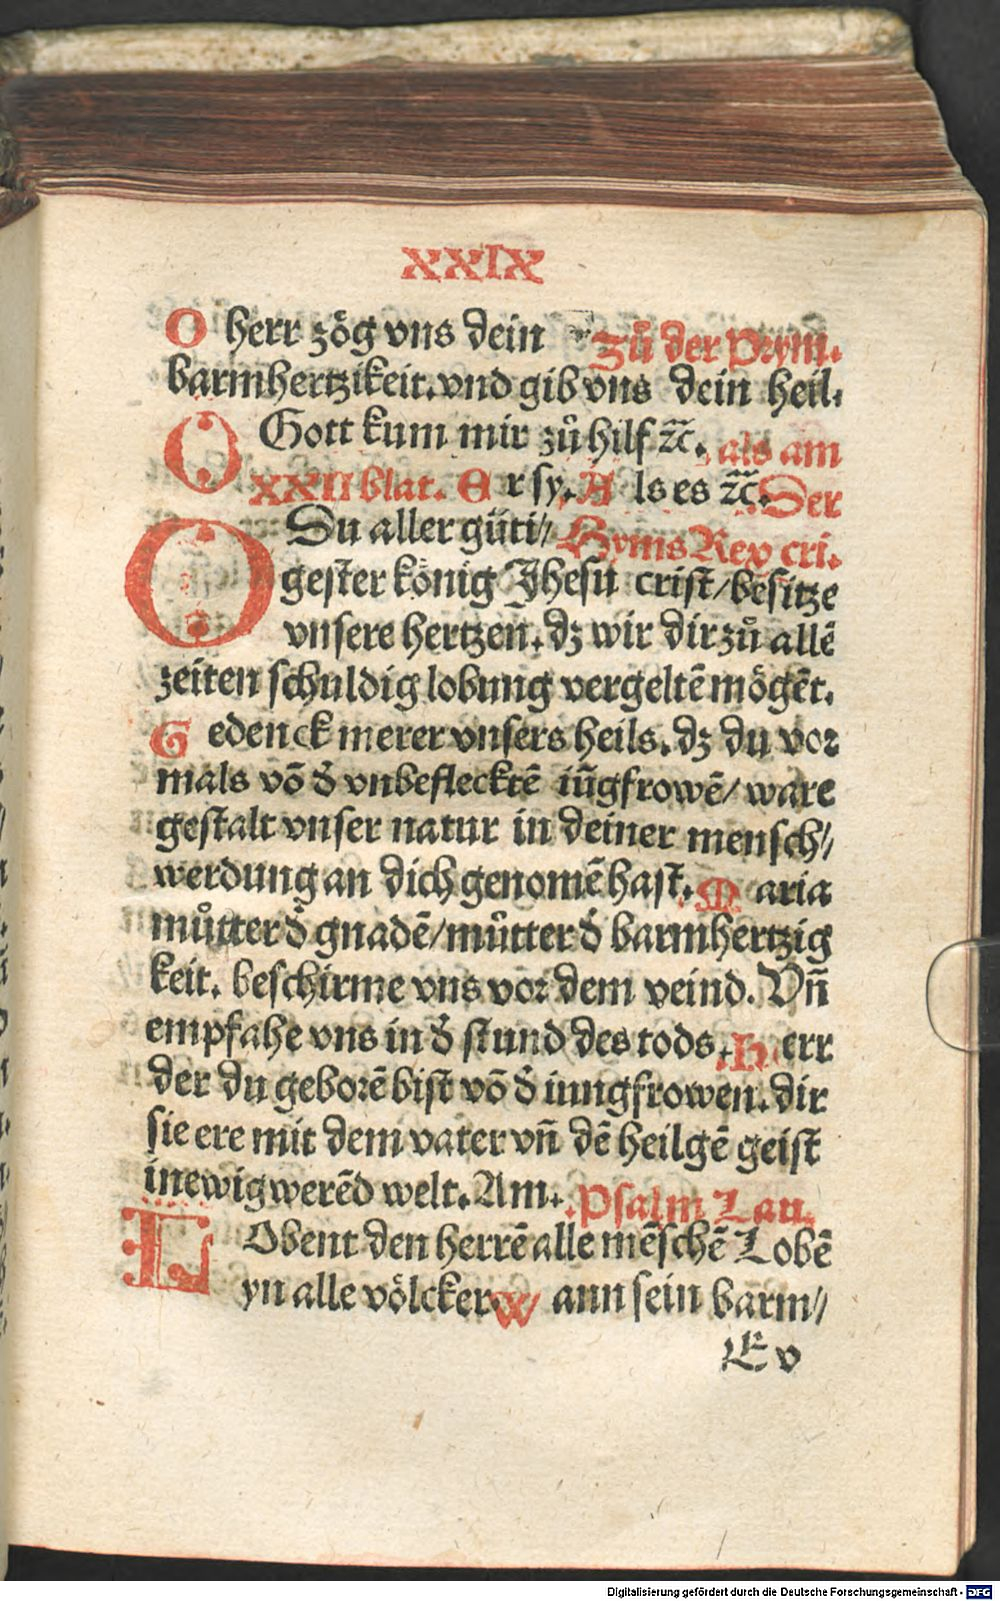 XXIX
O herr zög vns dein Zů der Prym.
barmhertzikeit. vnd gib vns dein heil.
O Gott kum mir zů hilf ꝛc̄. als am
XXII blat. Er sy. Als es ꝛc̄. Der
O Du aller güti⸗ Hyms Rex cri.
gester könig Jhesu crist/ besitze
vnsere hertzen. dz wir dir zů allē
zeiten schuldig lobung vergeltē mögēt.
Gedenck merer vnsers heils. dz du vor
mals vō d̕ vnbefleckē iūgfrowē/ ware
gestalt vnser natur in deiner mensch⸗
werdung an dich genomē hast. Maria
můtter d̕ gnadē/ můtter d̕ barmhertzig
keit. beschirme vns vor dem veind. Vñ
empfahe vns in d̕ stund des tods. Herr
der du geborē bist vō d̕ iungfrowen. dir
sie ere mit dem vater vñ dē heilgē geist
in ewig werēd welt. Am. Psalm Lau.
LObent den herrē alle mēschē Lobē
yn alle völcker. Wann sein barm⸗
E v
Digitalisierung gefördert durch die Deutsche Forschungsgemeinschaft - DFG